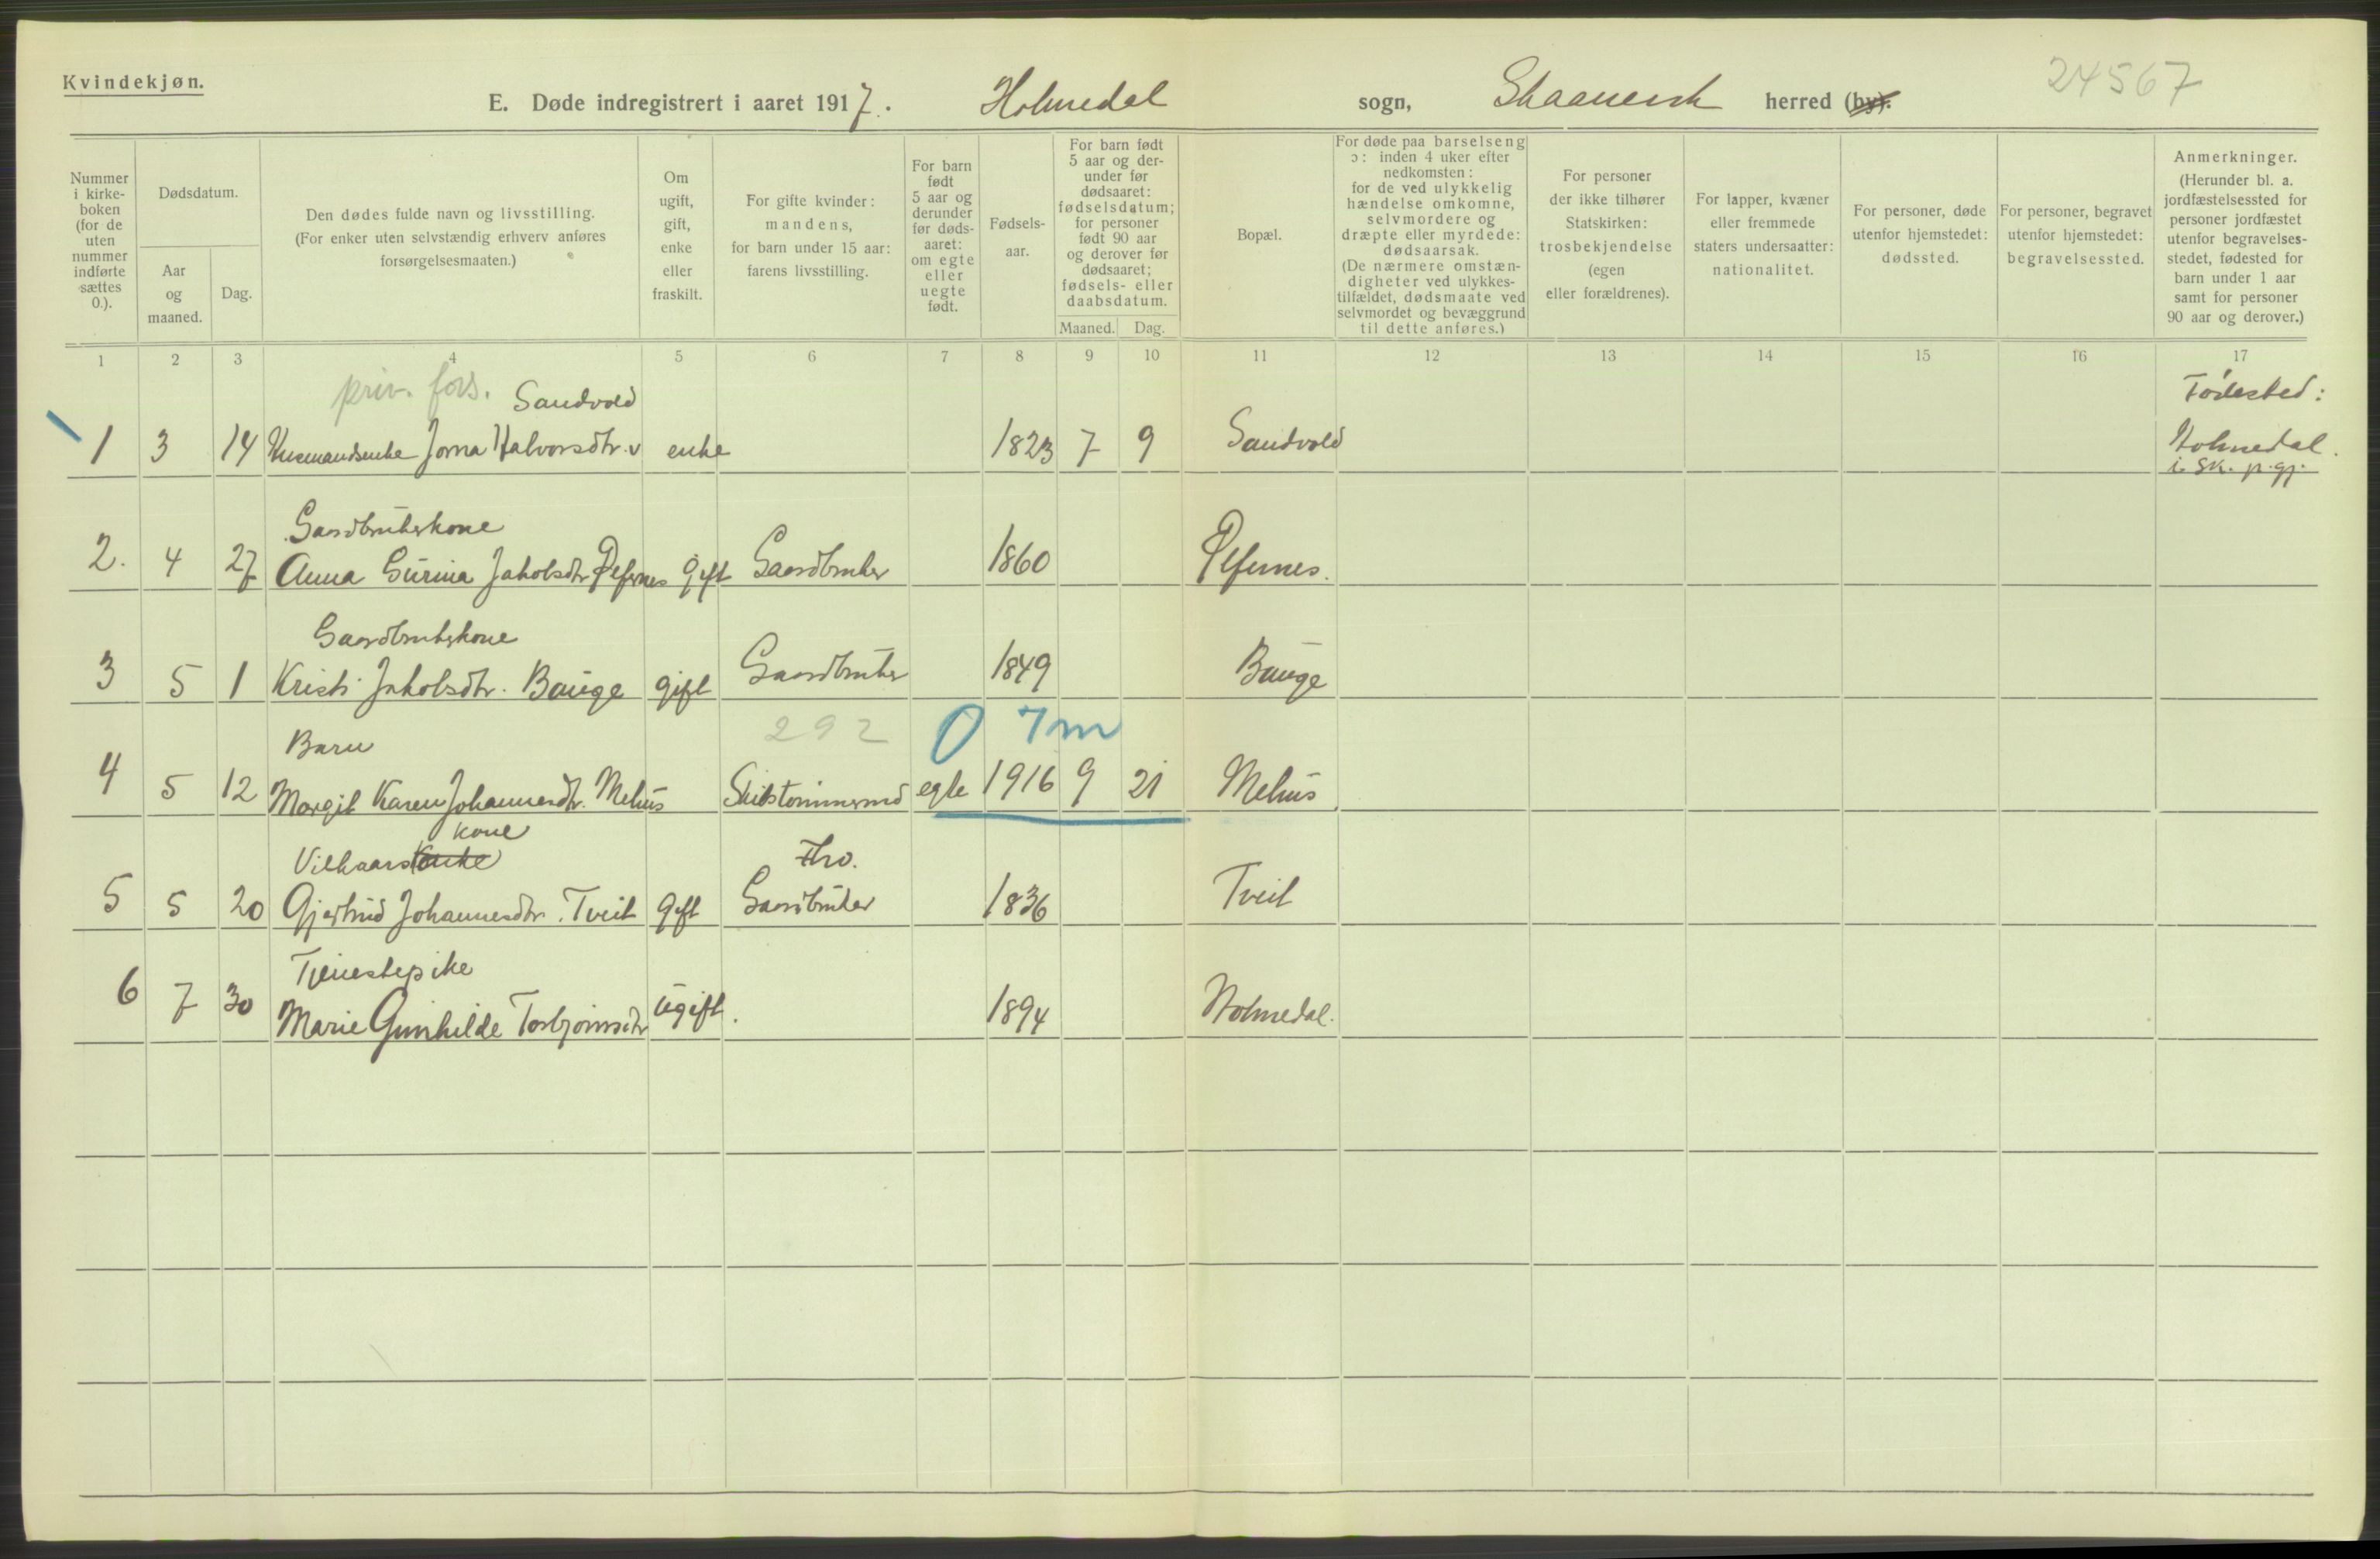 Kvindekjøn.
E. Døde indregistrert i aaret 1917. Holmedal sogn, Skaanevik herred (by).
24567
Nummer i kirkeboken (for de uten nummer indførte sættes 0.).
Dødsdatum.
Aar og maaned.
Dag.
Den dødes fulde navn og livsstilling.
(For enker uten selvstændig erhverv anføres forsørgelsesmaaten.)
Om ugift, gift, enke eller fraskilt.
For gifte kvinder: mandens, for barn under 15 aar: farens livsstilling.
For barn født 5 aar og derunder før dødsaaret: om egte eller uegte født.
Fødselsaar.
For barn født 5 aar og derunder før dødsaaret: fødselsdatum; for personer født 90 aar og derover før dødsaaret; fødsels- eller daabsdatum.
Maaned. Dag.
Bopæl.
For døde paa barselseng ɔ: inden 4 uker efter nedkomsten: for de ved ulykkelig hændelse omkomne, selvmordere og dræpte eller myrdede: dødsaarsak. (De nærmere omstændigheter ved ulykkestilfældet, dødsmaate ved selvmordet og bevæggrund til dette anføres.)
For personer der ikke tilhører Statskirken: trosbekjendelse (egen eller forældrenes).
For lapper, kvæner eller fremmede staters undersaatter: nationalitet.
For personer, døde utenfor hjemstedet: dødssted.
For personer, begravet utenfor hjemstedet: begravelsessted.
Anmerkninger. (Herunder bl. a. jordfæstelsessted for personer jordfæstet utenfor begravelsesstedet, fødested for barn under 1 aar samt for personer 90 aar og derover.)
1 2 3 4 5 6 7 8 9 10 11 12 13 14 15 16 17
priv. fors. Sandvold Fødested:
1 3 14 Husmandsenke Jorna Halvorsdtr. v enke 1823 7 9 Sandvold Holmedal
i. Sk. p.gj.
Gaardbrukerkone
2. 4 27 Anna Surina Jakobsdtr gift Gaardbruker 1860
Gaardbrukerkone
3 5 1 Kristi Jakobsdtr. Bauge gift Gaardbruker 1849 Bauge
Barn 292 0 7m
4 5 12 Margit Karen Johannesdtr. Mehus Skibstømmermd egte 1916 9 21 Mehus
kone
Vilkaarsenke fhv.
5 5 20 Gjertrud Johannesdtr. Tveit gift Gaardbruker 1836 Tveit
Tjenestepike
6 7 30 Marie Gunhilde Torbjørnsdtr ugift. 1894 Holmedal.